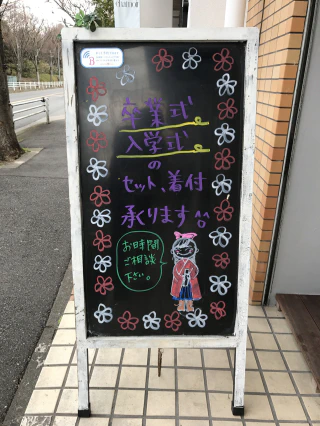 卒業式。
入学式。
の
セット、着付
承ります^^
お時間
ご相談
下さい。